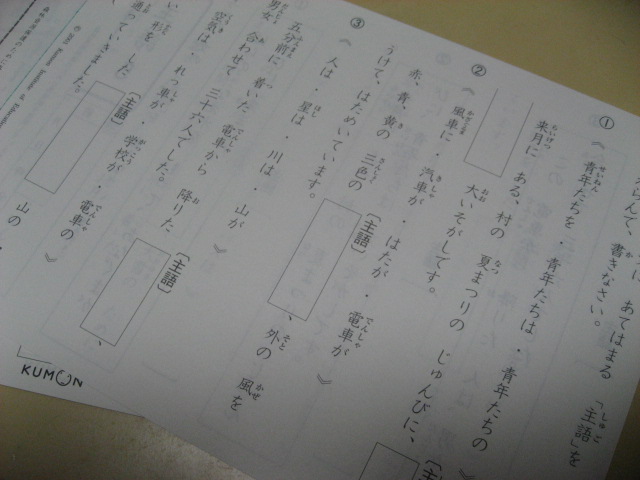 らんで、 に あてはまる 「主語」を
書きなさい。
①
《 青年たちを ・ 青年たちは ・ 青年たちの 》
来月に ある、村の 夏まつりの じゅんびに、
大いそがしです。
②
《 風車に ・ 汽車が ・ はたが ・ 電車が 》
赤、青、黄の 三色の 〔主語〕 、外の 風を
うけて、はためいています。
③
《 人は ・ 星は ・ 川は ・ 山が 》
五分前に 着いた 電車から 降りた 〔主語〕 、
男女 合わせて 三十六人でした。
空気は ・ れっ車が ・ 学校が ・ 電車の 》
い 形を した 〔主語〕 山の
通っていきました。
KUMON